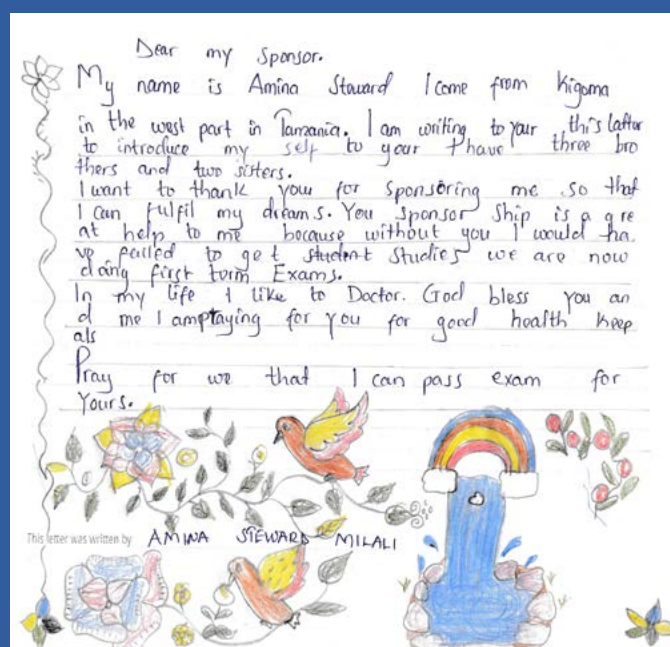 Dear my Sponsor.
My name is Amina Staward I come from Kigoma
in the west part in Tanzania. I am writing to your this latter
to introduce my self to your I have three bro
thers and two sisters.
I want to thank you for sponsoring me so that
I can fulfil my dreams. You Sponsor Ship is a gre
at help to me because without you I would ha
ve failed to get student studies we are now
doing first term Exams.
In my life I like to Doctor. God bless you an
d me I am praying for you for good health keep
als
Pray for we that I can pass exam for
Yours.
This letter was written by AMINA STEWARD MILALI